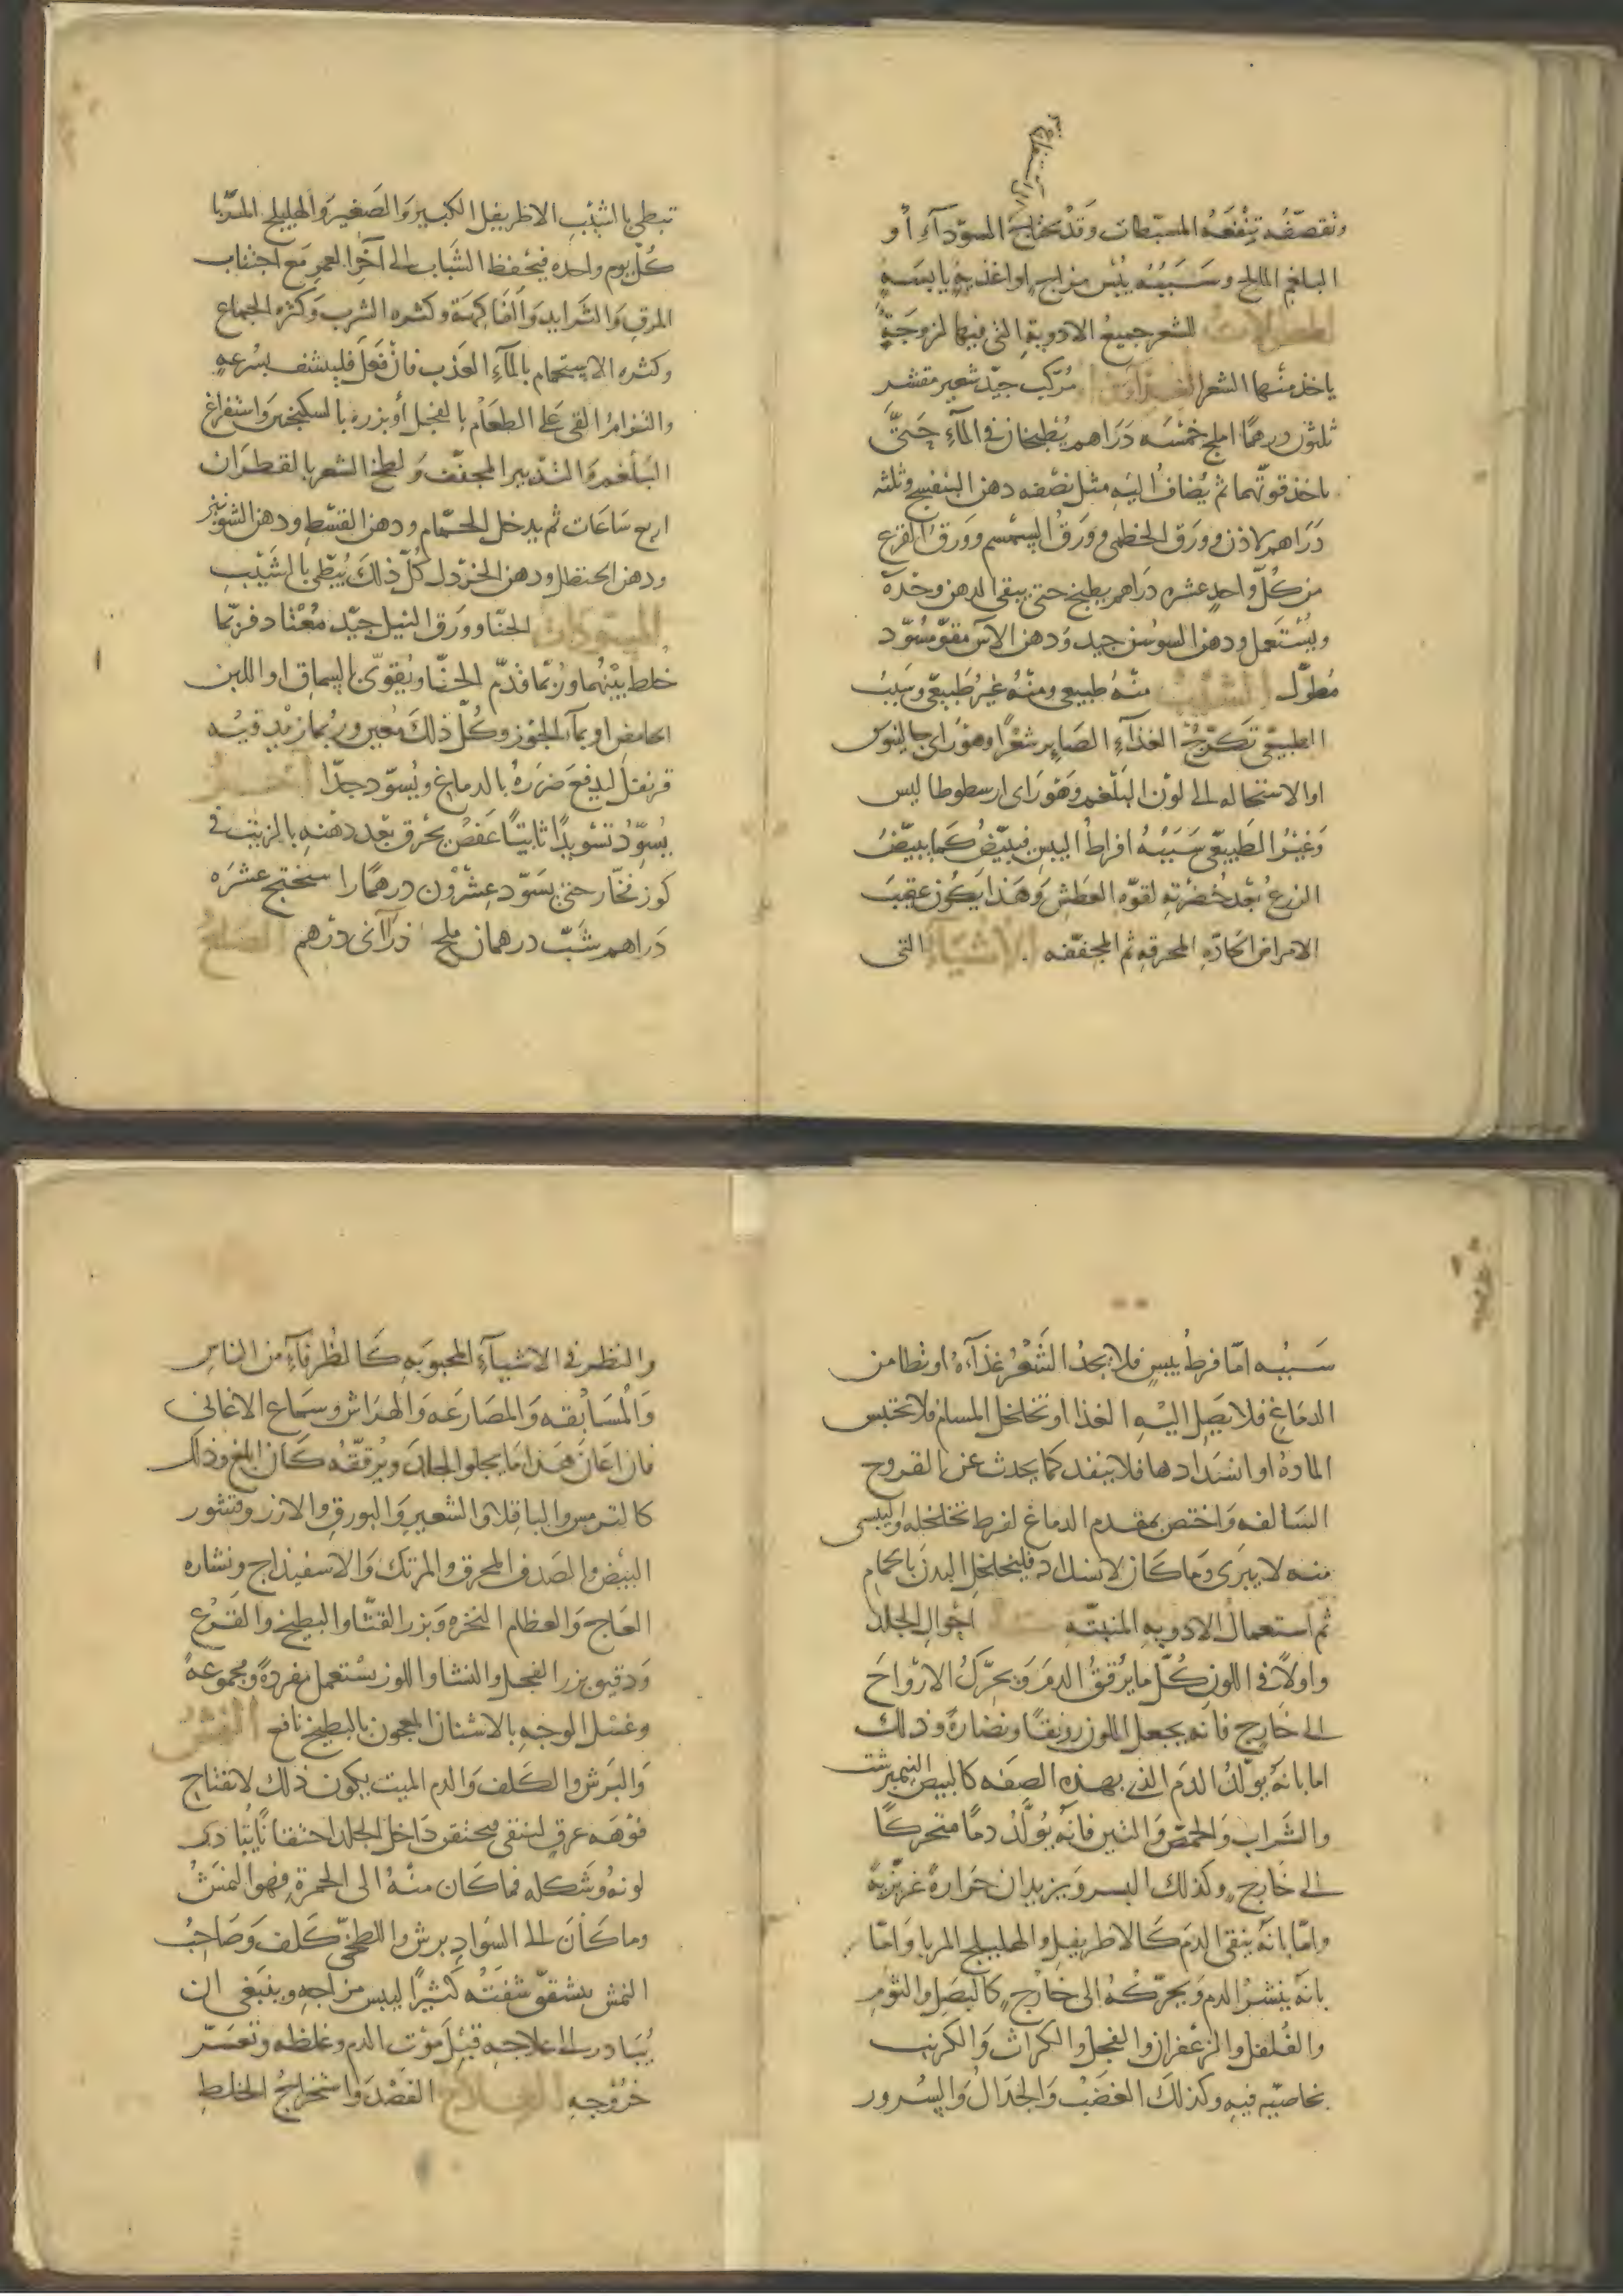 وتقصّفه تنفعه المسبطات وقد تحتاج السوداء أو
البلغم المالح وسببه يبس مزاج او اغذية يابسة
للشعر جميع الادوية التى فيها لزوجة
ياخذ منها الشعر الغذا مركب جيد شعير مقشر
ثلثون درهما املج خمسه دراهم يطبخان فى المآء حتى
ياخذ قوتهما ثم يضاف اليه مثل نصفه دهن البنفسج وثلثه
دراهم لاذن وورق الخطمى وورق السمسم وورق القرع
من كل واحد عشره دراهم يطبخ حتى يبقى الدهن وحده
ويستعمل ودهن السوسن جيد ودهن الآس مقو مسود
مطول الشيب منه طبيعى ومنه غير طبيعى وسبب
الطبيعى تكرج الغذآء الصاير شعرا وهو راى جالينوس
او الاستحاله الى لون البلغم وهو راى ارسطوطاليس
وغير الطبيعى سببه افراط اليبس فيبيض كما يبيض
الزرع بعد خضرته لقوه العطش وهذا يكون عقيب
الامراض الحاده المحرقه ثم المجففه الاشيآء التى
تبطى بالشيب الاطريفل الكبير والصغير والهليلج المربا
كل يوم واحده فيحفظ الشباب الى آخر العمر مع اجتناب
المرق والثرايد والفاكهة وكثره الشرب وكثره الجماع
وكثره الاستحمام بالمآء العذب فان فعل فلينشف بسرعه
والتزام القى على الطعام بالفجل أو بزره بالسكنجبين واستفراغ
البلغم والتدبير المجفف ولطخ الشعر بالقطران
اربع ساعات ثم يدخل الحمام ودهن القسط ودهن الشونيز
ودهن الحنظل ودهن الخردل كل ذلك يبطى بالشيب
المسودات الحنا وورق النيل جيد معتاد فربما
خلط بينهما وربما قدم الحنا ويقوى بالسماق او اللبن
الحامض او بمآ الجوز وكل ذلك معين وربما زيد فيه
قرنفل ليدفع ضرره بالدماغ ويسود جدا آخر
يسود تسويدا ثابتا عفص يحرق بعد دهنه بالزيت فى
كوز فخار حتى يسود عشرون درهما راسختج عشره
دراهم شب درهمان ملح ذرآنى درهم الصلع
سببه اما فرط يبس فلا يجد الشعر غذآءه او تطامن
الدماغ فلا يصل اليه الغذا او تخلخل المسام فلا تحتبس
الماده او انسدادها فلا ينفد كما يحدث عن القروح
السالفه واختص بمقدم الدماغ لفرط تخلخله واليبسى
منه لا يبرى وما كان لانسداد فليخلخل البدن بالحمام
ثم استعمال الادويه المنبته احوال الجلد
واولا فى اللون كل ما يرقق الدم ويحرك الارواح
الى خارج فانه يجعل اللون رونقا ونضارة وذلك
اما بانه يولد الدم الذى بهذه الصفه كالبيض النيمبرشت
والشراب والحمص والتين فانه يولد دما متحركا
الى خارج وكذلك البسر ويزيدان حرارة غريزية
واما بانه ينقى الدم كالاطريفل والهليلج المربا واما
بانه ينشر الدم ويحركه الى خارج كالبصل والثوم
والفلفل والزعفران والفجل والكراث والكرنب
بخاصيه فيه وكذلك الغضب والجدال والسرور
والنظر فى الاشيآء المحبوبه كالظرفآء من الناس
والمسابقه والمصارعه والهراش وسماع الاغانى
فان اعان هذا ما يجلو الجلد ويرققه كان ابلغ وذلك
كالترمس والباقلا والشعير والبورق والارز وقشور
البيض والصدف المحرق والمرتك والاسفيذاج ونشاره
العاج والعظام النخره وبزر القثا والبطيخ والقرع
ودقيق بزر الفجل والنشا واللوز يستعمل مفردة ومجموعة
وغسل الوجه بالاشنان المعجون بالبطيخ نافع النمش
والبرش والكلف والدم الميت يكون ذلك لانفتاح
فوهه عرق فيحتقن داخل الجلد احتقانا
لونه وشكله فما كان منه الى الحمرة فهو النمش
وما كان الى السواد برش واللطخى كلف وصاحب
النمش ينشقق شفته كثيرا ليبس مزاجه وينبغى ان
يبادر الى علاجه قبل موت الدم وغلظه وتعسر
خروجه العلاج الفصد واستخراج الخلط